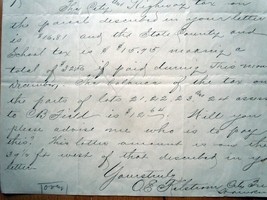 City & Highway tax on
the parcel described in your letter
is $16.81 and the State County and
School tax is $15.95 making a
total of $32.76 if paid during this mon
December, The balance of the tax on
the parts of lots 21.22.23 & 24 assess
to Field is $10
Will you
please advise me who is to pay
this? This latter amount is on the
30 ft west of that described in y
letter.
Yoursturly